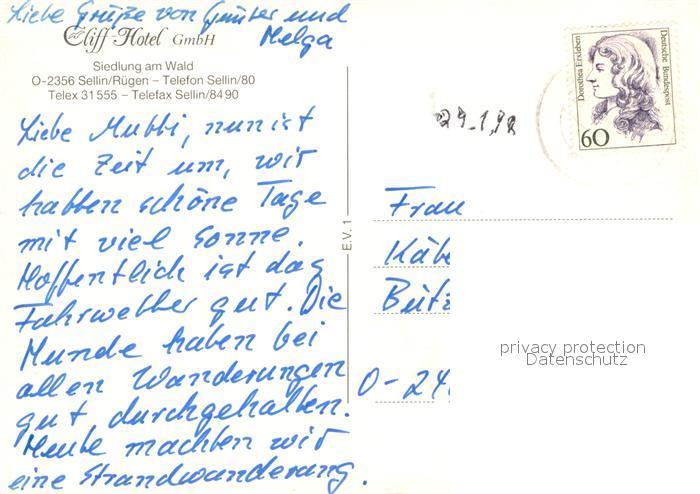 Liebe Grüße von Günter und
Helga
Cliff-Hotel GmbH
Siedlung am Wald
O-2356 Sellin/Rügen – Telefon Sellin/80
Telex 31 555 – Telefax Sellin/84 90
Liebe Mutti, nun ist
die Zeit um, wir
hatten schöne Tage
mit viel Sonne.
Hoffentlich ist das
Fahrwetter gut. Die
Hunde haben bei
allen Wanderungen
gut durchgehalten.
Heute machten wir
eine Strandwanderung.
E.V. 1
29.1.92
Dorothea Erxleben
Deutsche Bundespost
60
Frau
O-24
privacy protection
Datenschutz